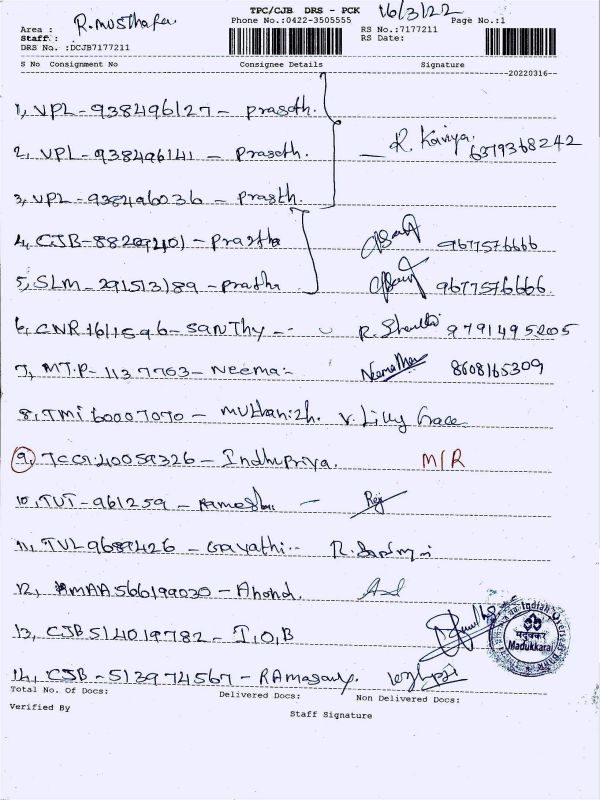 TPC/CJB DRS - PCK 16/3/22
Area : R.Musthafa Phone No.:0422-3505555 Page No.:1
Staff.: RS No.:7177211
DRS No. :DCJB7177211 RS Date:
S No Consignment No Consignee Details Signature
20220316
1, VPL-938496127 - Prasoth.
2, VPL-938496141 - Prasoth. R. Kaviya. 6379368242
3, VPL-938496036 - Prasth.
4, CJB-88209401 - Prastha 9677576666
5, SLM-291513189 - Prastha 9677576666.
6, CNR 1611596 - Santhy -- 9791495205
7, MTP-1137763 - Neema - 8608165309
8, TMI 60007070 - V. Lilly Grace
9, TCCI 40059326 - Indhupriya. M/R
10, TUT-961259 - Ramesh -
11, TVL 9689426 - Gayathi--
12, MAA 566199030 - Ahond.
13, CJB 514019782 - I,O,B
14, CJB-513974567 - RAmasamy.
मदुक्करै
Madukkarai
Total No. Of Docs: Delivered Docs: Non Delivered Docs:
Verified By Staff Signature